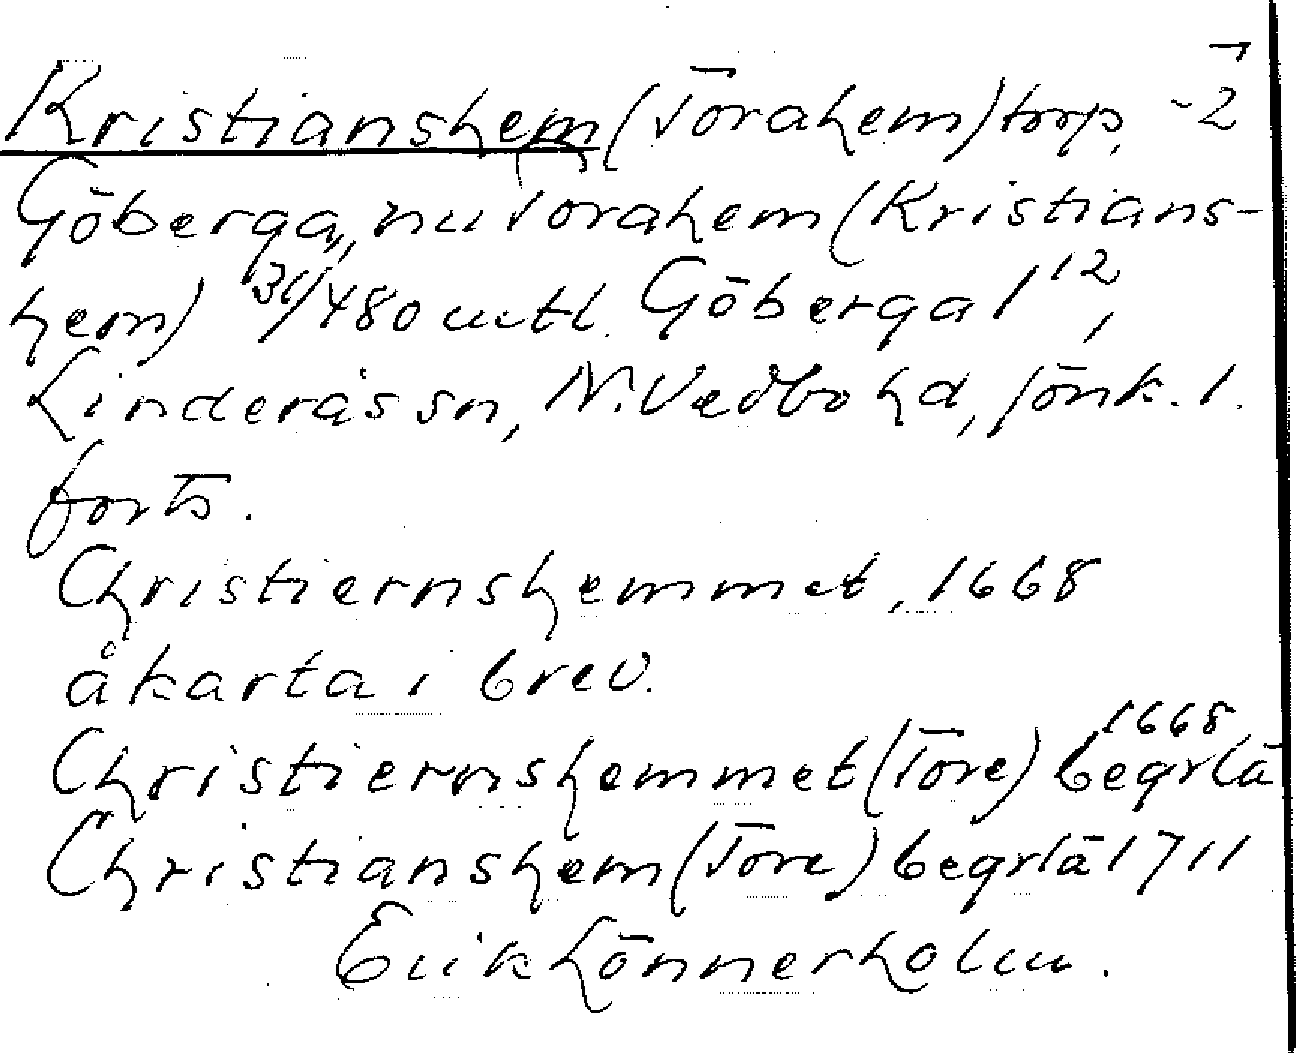 Kristianshem (Torahem) torp, -2
Göberga, nu Torahem (Kristians-
hem) 31/480 mtl. Göberga 1 12,
Linderås sn, N. Vedbo hd, Jönk. l.
forts.
Christiernshemmet, 1668
åkarta i brev.
Christiernshemmet (Tore) begrlä 1668
Christianshem (Tore) begrlä 1711
Erik Lönnerholm.